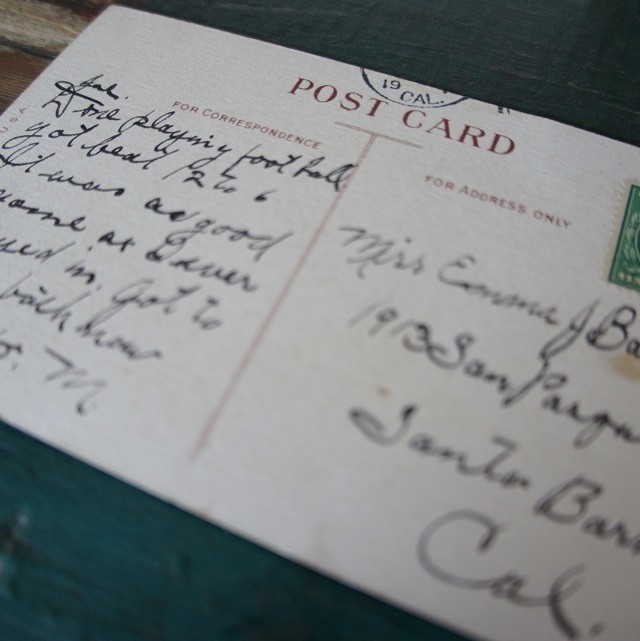 19
CAL.
POST CARD
FOR CORRESPONDENCE
FOR ADDRESS ONLY
playing foot ball.
got beat 12 to 6
it was as good
game as I ever
in. Got to
back now
M.
Miss Emma J Ba
1913 San
Santa Bar
Cal.